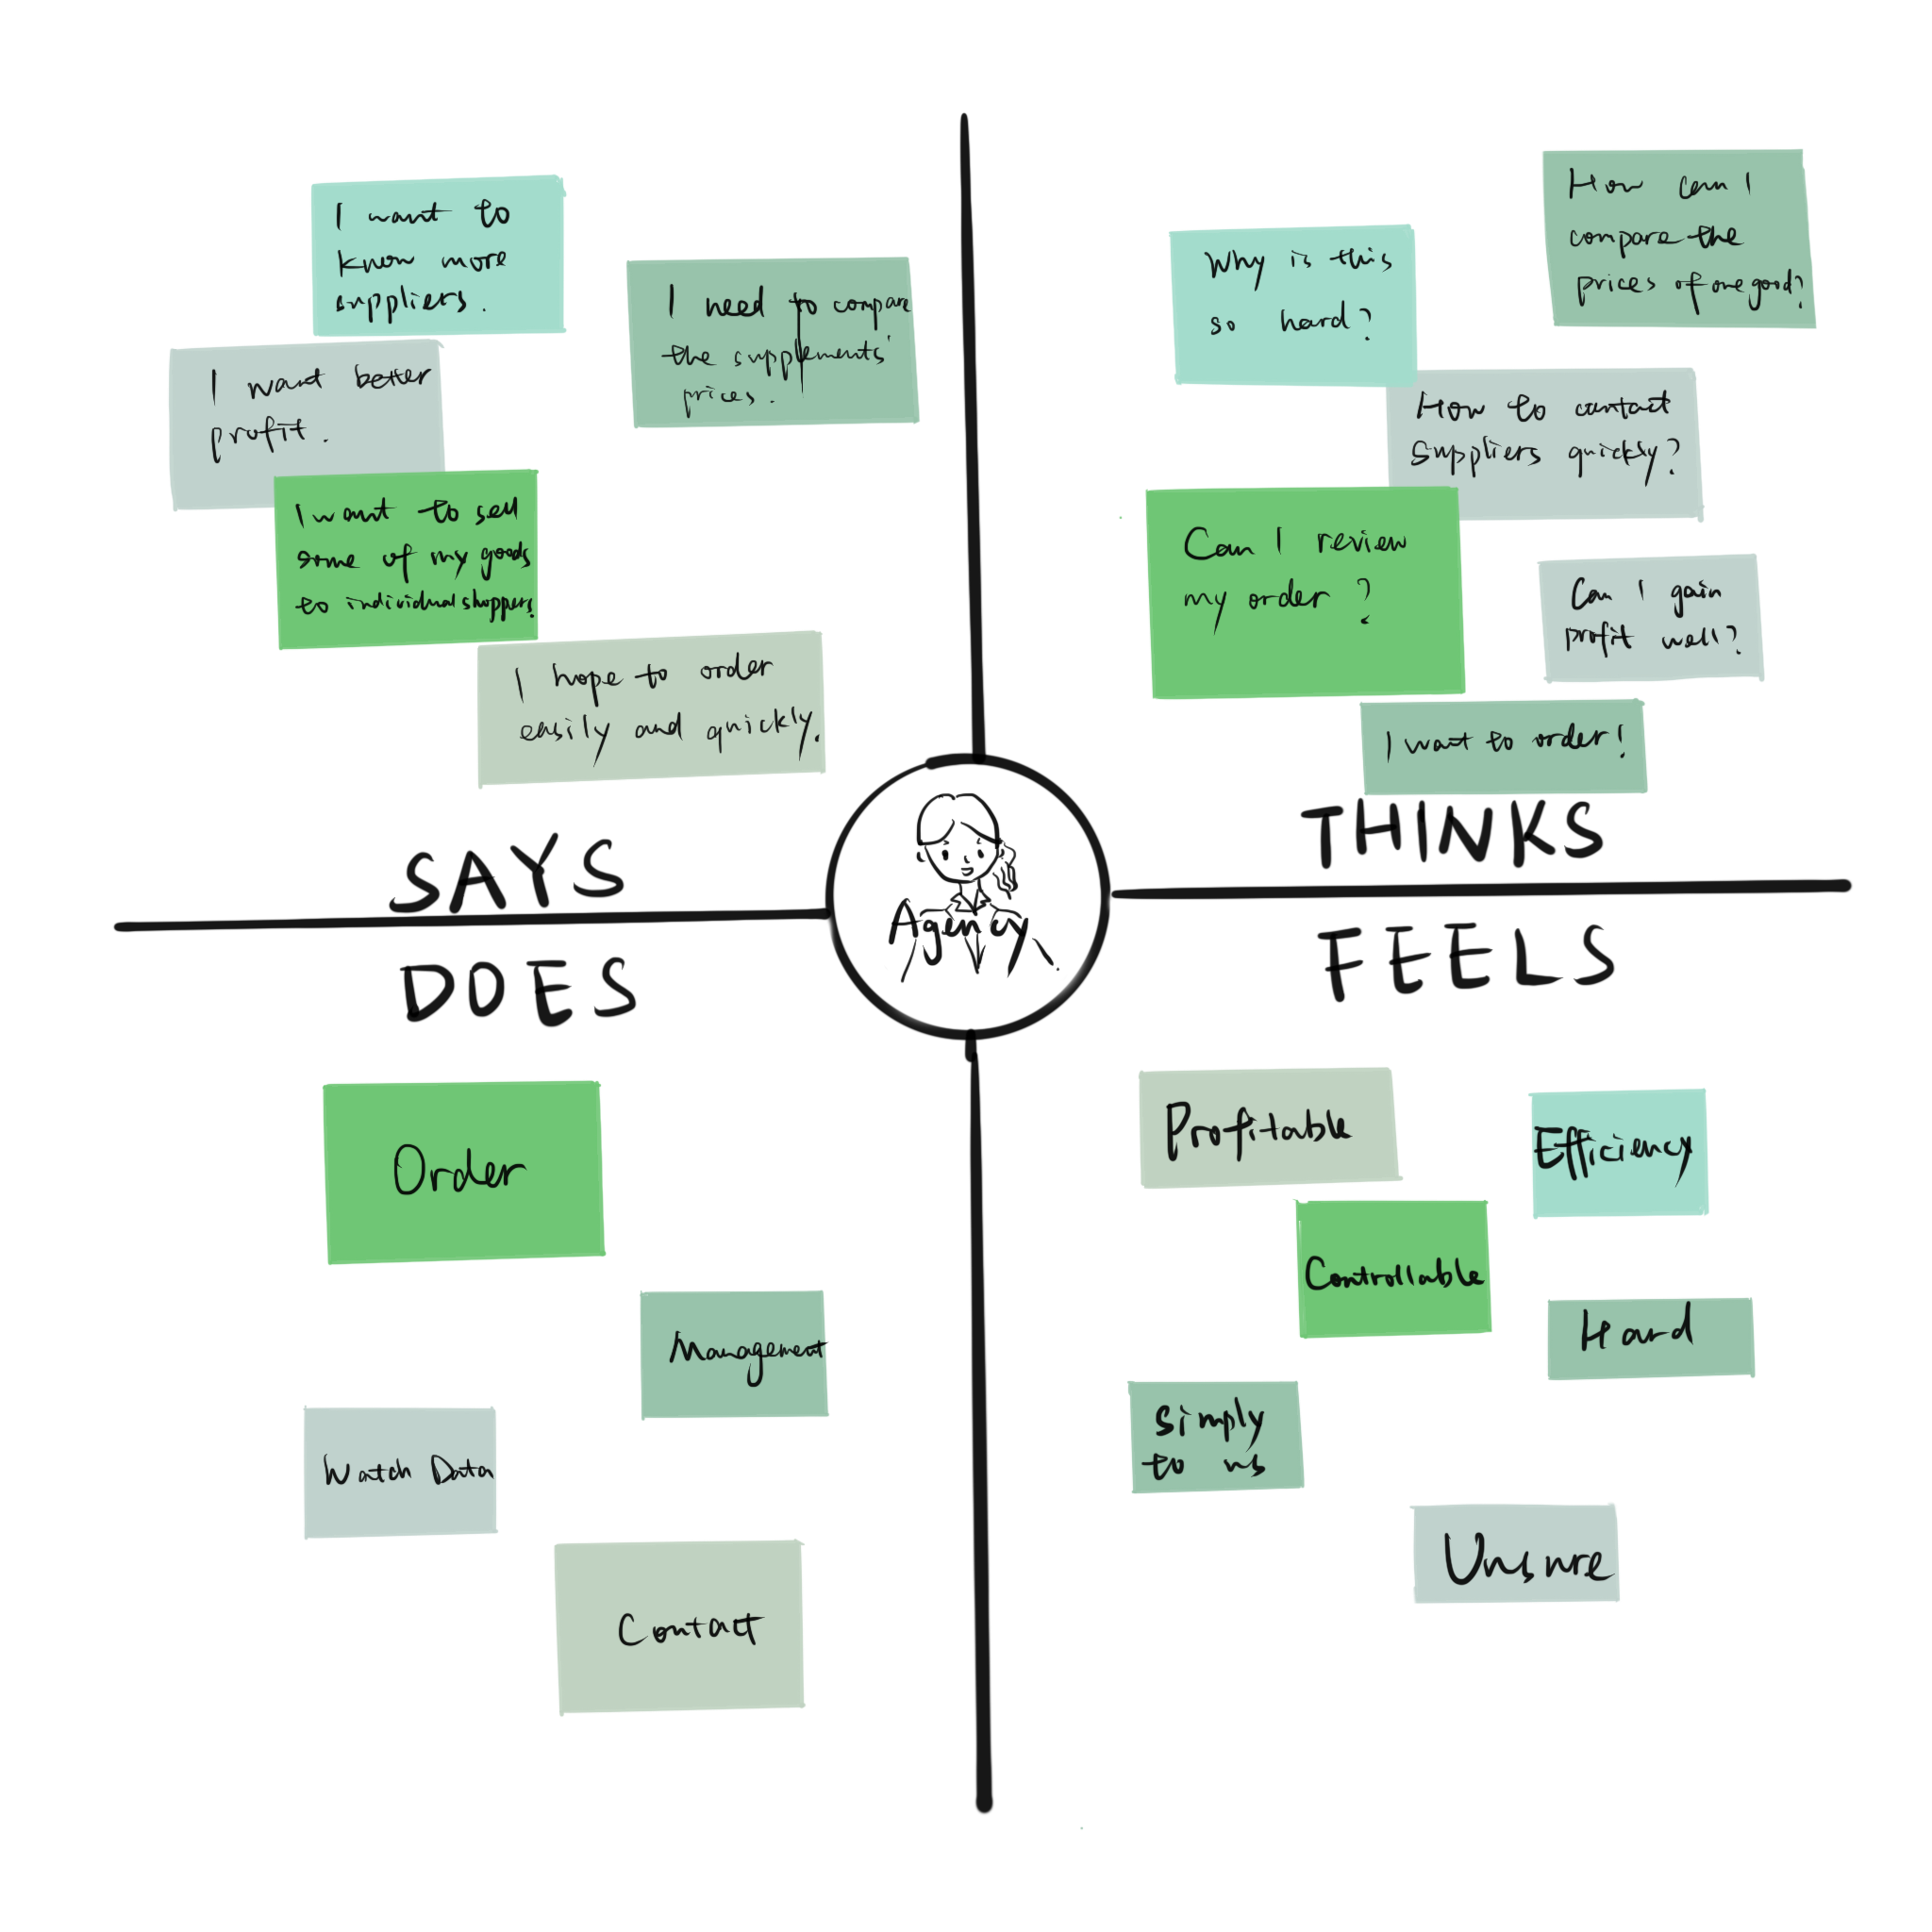 I want to
know more
suppliers.
I need to compare
the supplements'
prices.
I want better
profit.
I want to sell
some of my goods
to individual shoppers.
I hope to order
easily and quickly.
SAYS
Why is this
so hard?
How can I
compare the
prices of one good?
How to contact
suppliers quickly?
Can I review
my order?
Can I gain
profit well?
I want to order!
THINKS
Agency
DOES
Order
Management
Watch Data
Contact
FEELS
Profitable
Efficiency
Controllable
Hard
Simply
to us
Unsure